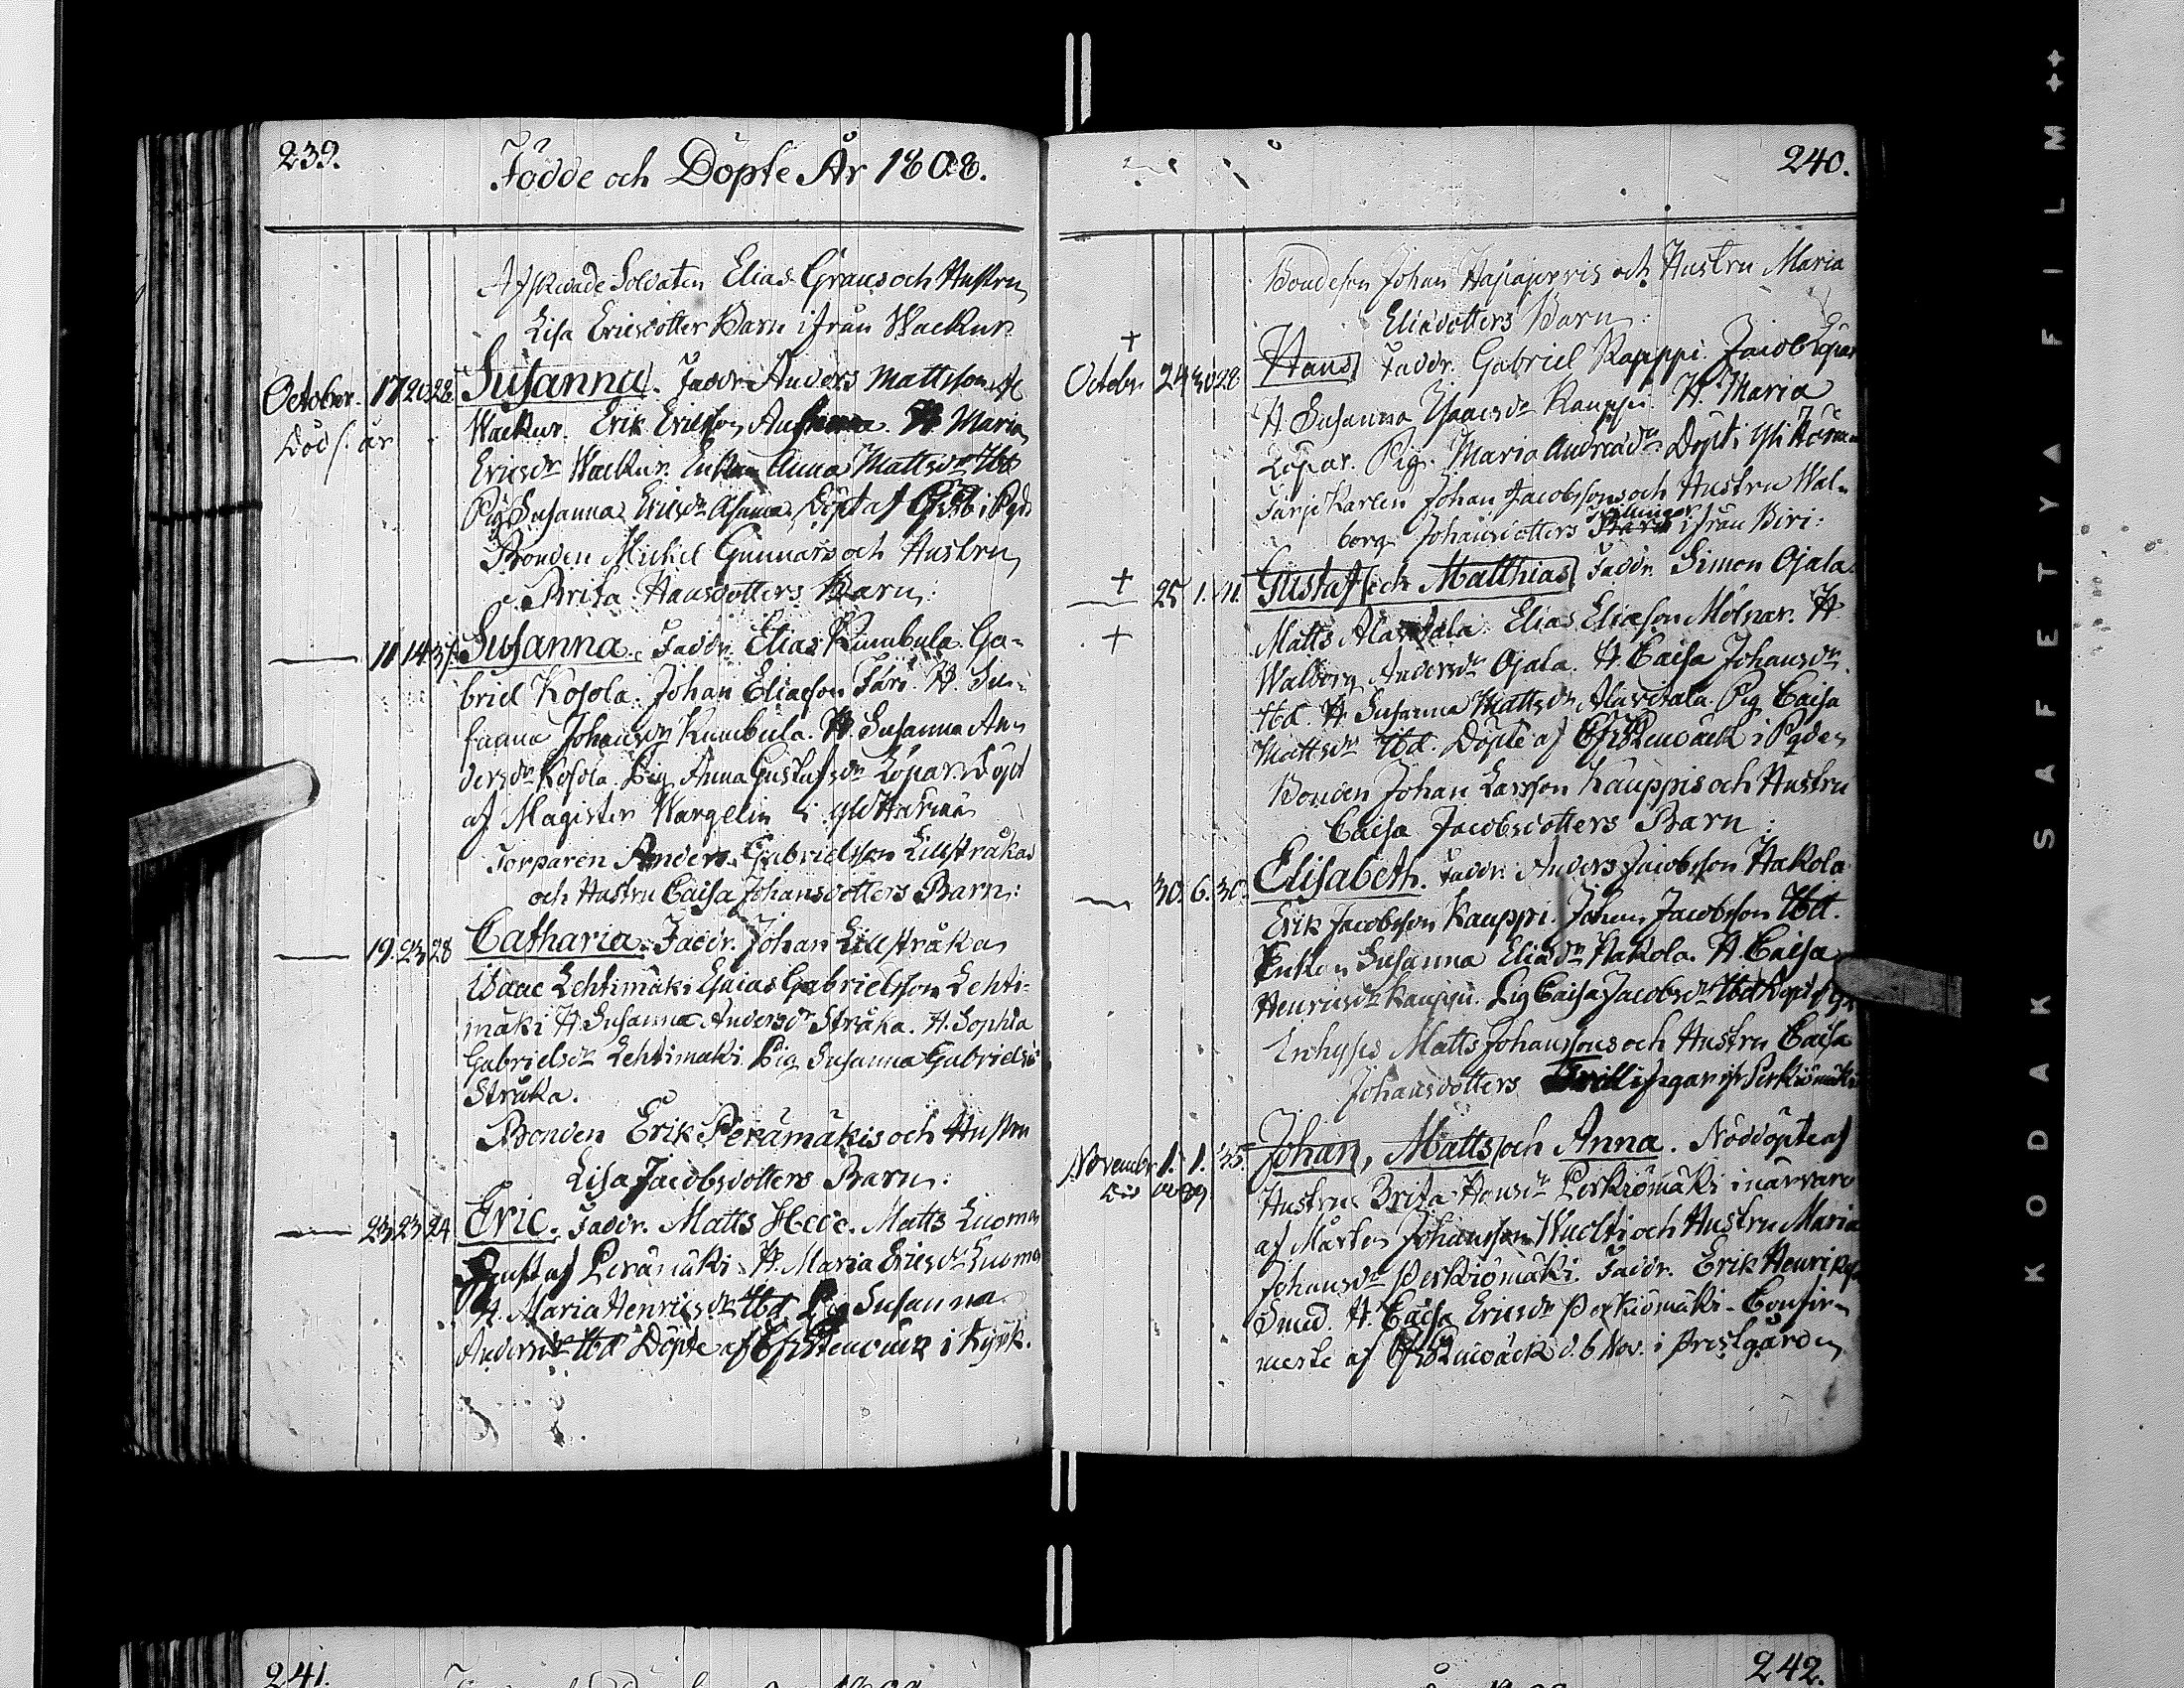 239.
Födde och Döpte År 1808.
Afskedade Soldaten Elias Graus och Hustru
Lisa Ericsdotter Barn ifrån Wackur
October. 17 20 28. Susanna. Faddr. Anders Mattsson
Död s. år Wackur. Erik Ericsson H. Maria
Ericsdr Wackur. Enkan Anna Mattsdr Ibd
Pig. Susanna Ericsdr Döpt af i Pgdn
Bonden Michel Gunnars och Hustru
Brita Hansdotters Barn:
— 11 14 37. Susanna. Faddr. Elias Kumbula Ga-
briel Kosola. Johan Eliasson Färi. H. Su-
sanna Johansdr Kumbula. H. Susanna An-
dersdr Kosola. Pig. Anna Gustafsdr Löpar. Döpt
af Magister Wargelin i Yli Härmä
Torparen Anders Gabrielsson Lillstråkas
och Hustru Caisa Johansdotters Barn:
— 19. 23 28 Catharia. Faddr. Johan Lillstråka
Isaac Lehtimäki Esaias Gabrielsson Lehti-
mäki H. Susanna Andersdr Stråka. H. Sophia
Gabrielsdr Lehtimäki. Pig. Susanna Gabrielsdr
Stråka.
Bonden Erik Perämäkis och Hustru
Lisa Jacobsdotters Barn:
— 23 23 24 Eric. Faddr. Matts Matts Luoma
Gustaf Perämäki. H. Maria Ericsdr Luoma
H. Maria Henricsdr Ibd Pig Susanna
Andersdr Ibd Döpte af i Kyrk.
240.
Bondeson Johan Hapajervis och Hustru Maria
Eliædotters Barn:
+
Octobr 24 30 28 Hans Faddr. Gabriel Kauppi. Jacob Löpar
H. Susanna Isaacsdr Kauppi. H. Maria
Löpar. Pig. Maria Andreædr. Döpt i Yli Härmä
Färje Karlen Johan Jacobssons och Hustru Wal-
borg Johansdotters Tvillingar ifrån Biri:
+ — 25 1. 41. Gustaf och Matthias Faddr. Simon Ojala.
+ Matts Alavitala. Elias Eliæson Mölnar. H.
Walborg Andersdr Ojala. H. Caisa Johansdr
Ibd. H. Susanna Mattsdr Alavitala. Pig Caisa
Mattsdr Ibd. Döpte af i Pgden
Bonden Johan Larsson Kauppis och Hustru
Caisa Jacobsdotters Barn:
— 30. 6. 30. Elisabeth. Faddr. Anders Jacobsson Hakola
Erik Jacobsson Kauppi. Johan Jacobsson Ibd.
Enkan Susanna Eliædr Hakola. H. Caisa
Henricsdr Kauppi. Pig Caisa Jacobsdr Ibd Döpt
Inhyses Matts Johanssons och Hustru Caisa
Johansdotters Trillingar ifr Perkiömäki
Novembr 1. 1. 35. Johan, Matts och Anna. Nöddöpte af
Hustru Brita Hansdr Perkiömäki i närvaro
af Mårten Johansson Wuolti och Hustru Maria
Johansdr Perkiömäki. Faddr. Erik Henriks
Smed. H. Caisa Ericsdr Perkiömäki - Confir-
merte af d. 6 Nov. i Prestgården
241.
242.
KODAK SAFETY FILM